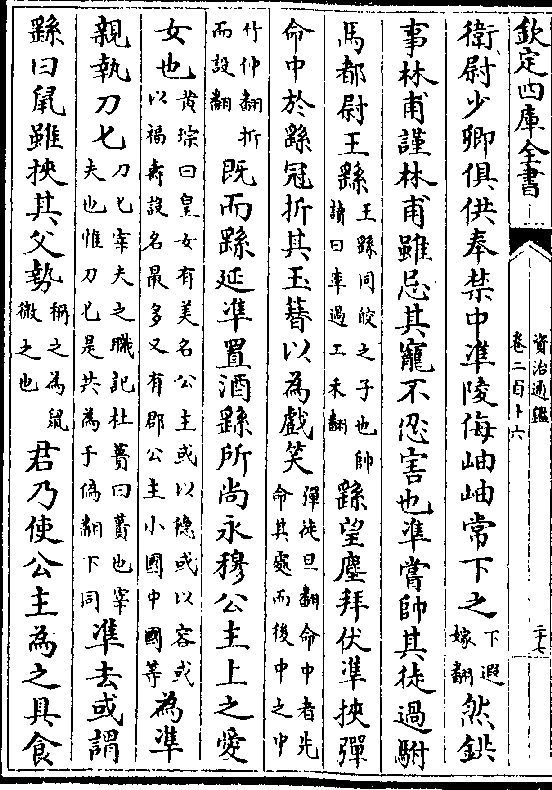 欽定四庫全書
資治通鑑
卷二百十六
二十七
衛尉少卿俱供奉禁中準陵侮岫岫常下之下遐嫁翻然鉷
事林甫謹林甫雖忌其寵不忍害也準嘗帥其徒過駙
馬都尉王繇王繇同皎之子也帥讀曰率過工禾翻繇望塵拜伏準挾彈
命中於繇冠折其玉簪以為戲笑彈徒旦翻命中者先命其處而後中之中
竹仲翻折而設翻既而繇延準置酒繇所尚永穆公主上之愛
女也黄琮曰皇女有美名公主或以穗或以容或以福壽設名最多又有郡公主小國中國等為準
親執刀匕刀匕宰夫之職記杜蕢曰蕢也宰夫也惟刀匕是共為于偽翻下同準去或謂
繇曰鼠雖挾其父勢稱之為鼠微之也君乃使公主為之具食